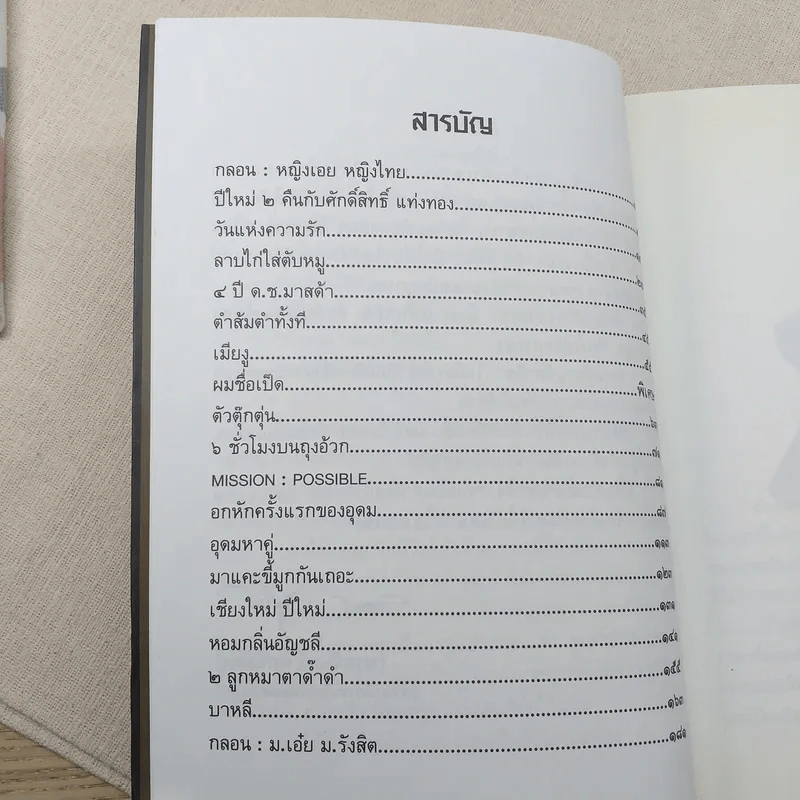 สารบัญ
กลอน : หญิงเอย หญิงไทย
ปีใหม่ ๒ คืนกับศักดิ์สิทธิ์ แท่งทอง
วันแห่งความรัก
ลาบไก่ใส่ตับหมู
๔ ปี ด.ช.มาสด้า
ตำส้มตำทั้งที
เมียงู
ผมชื่อเป็ด....พิเศษ
ตัวตุ๊กตุ่น
๖ ชั่วโมงบนถุงอ้วก....๗๑
MISSION : POSSIBLE....๘๑
อกหักครั้งแรกของอุดม....๘๗
อุดมหาคู่....๑๑๓
มาแคะขี้มูกกันเถอะ....๑๒๓
เชียงใหม่ ปีใหม่....๑๓๑
หอมกลิ่นอัญชลี....๑๔๑
๒ ลูกหมาตาด๊ำดำ....๑๕๕
บาหลี....๑๖๓
กลอน : ม.เอ๋ย ม.รังสิต....๑๘๑